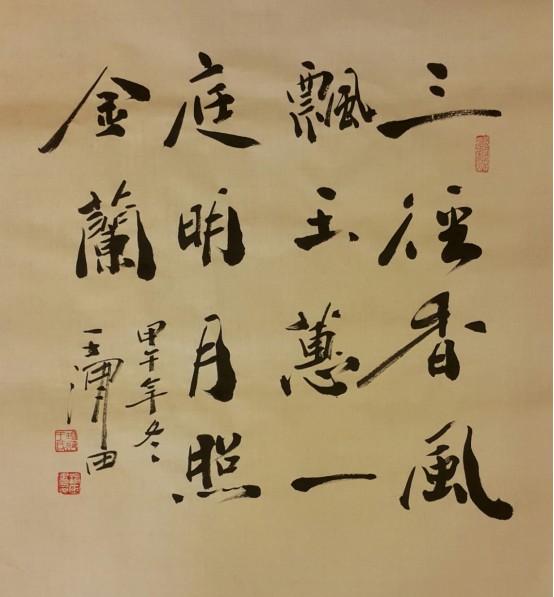 三徑香風
飄玉蕙一
庭明月照
金蘭
甲午年冬